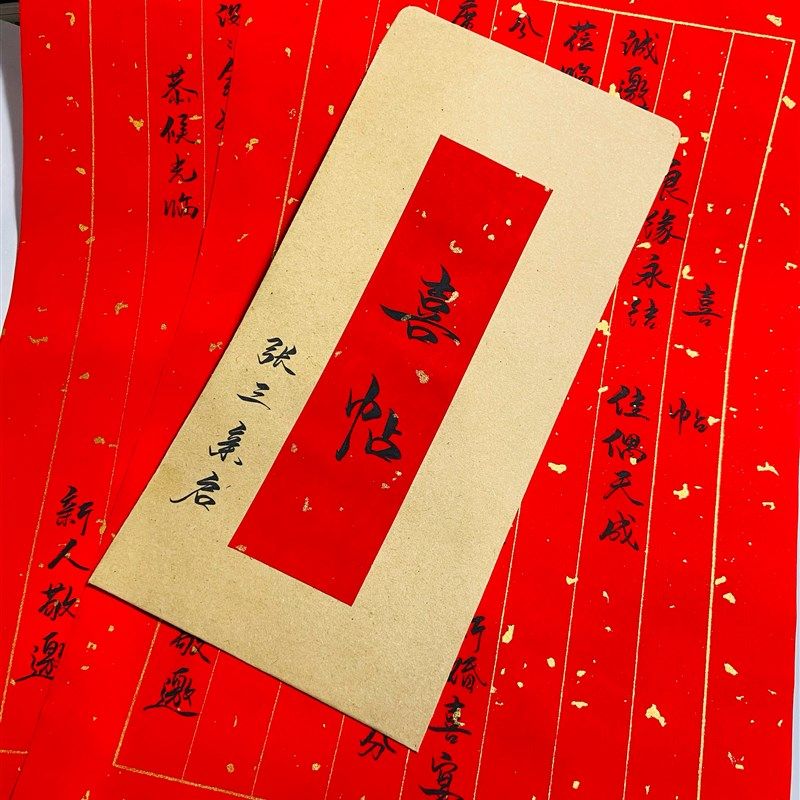 喜帖
张三亲启
喜帖
良缘永结 佳偶天成
诚邀
莅临
婚喜宴
分
席
设
敬邀
恭候光临
新人敬邀